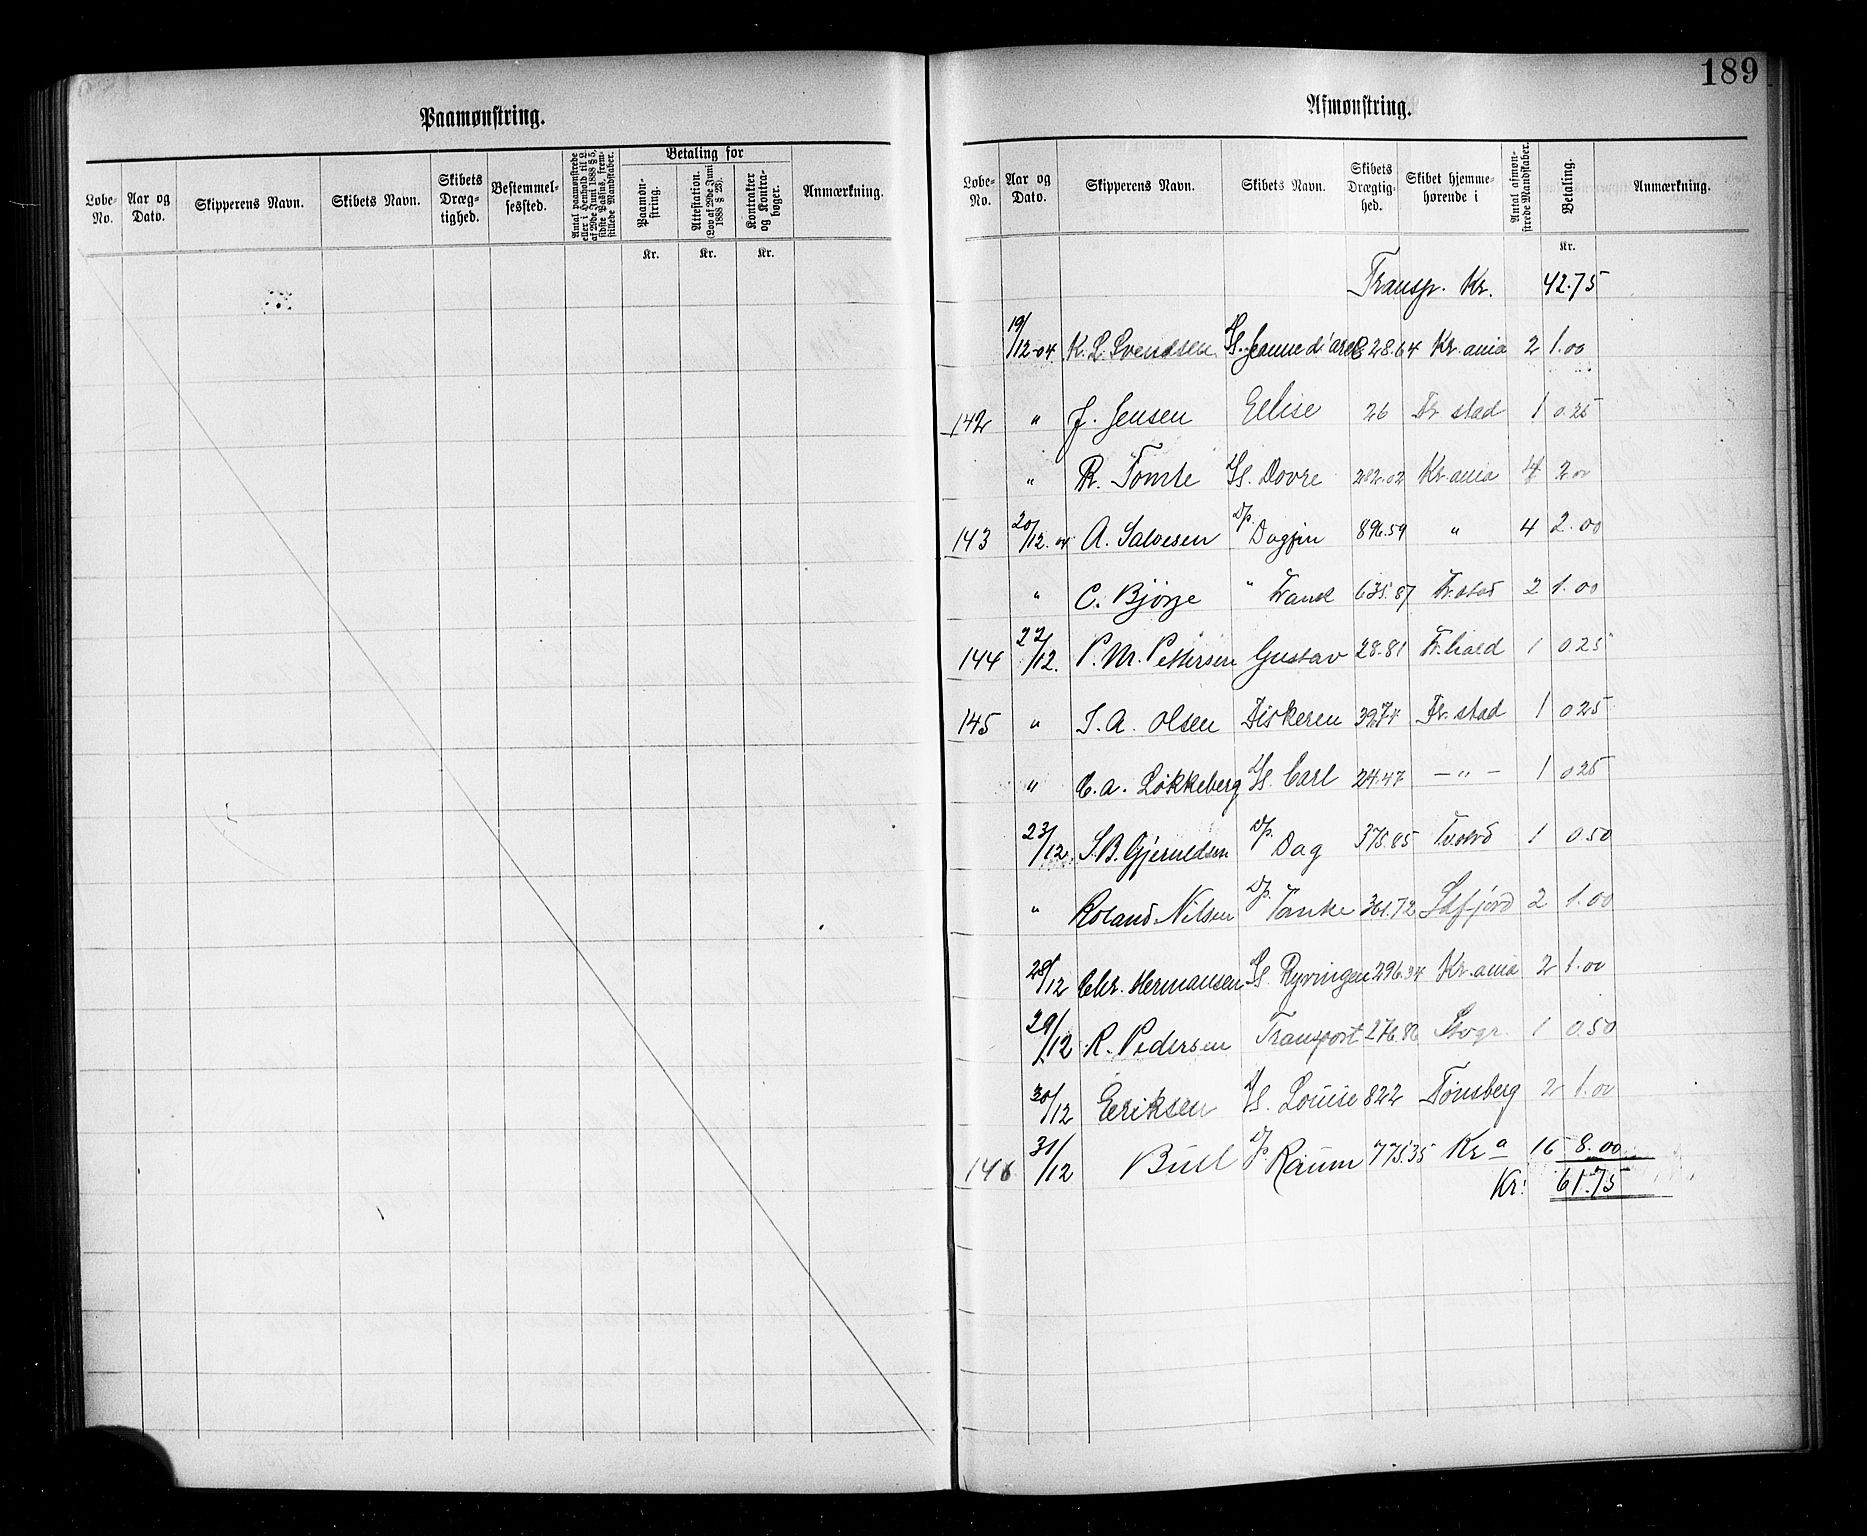 189
Paamønstring.
Løbe-No. Aar og Dato. Skipperens Navn. Skibets Navn. Skibets Dræg-tighed. Bestemmel-sessted. Antal paamønstrede eller i Henhold til L. af 29de Juni 1888 § 5, sidste Passus, frem-stillede Mandskaber. Betaling for Paamøn-string. Attestation. (Lov af 29de Juni 1888 § 23). Kontrakter og Kontra-bøger. Anmærkning.
Kr. Kr. Kr.
Afmønstring.
Løbe-No. Aar og Dato. Skipperens Navn. Skibets Navn. Skibets Drægtig-hed. Skibet hjemme-hørende i Antal afmøn-strede Mandskaber. Betaling. Anmærkning.
Kr.
Transp. Kr. 42.75
19/12-04 K. L. Svendsen S/S. Jeanne d'arc 828.64 Kr.ania 2 1.00
142 " J. Jensen Ellise 26 Fr.stad 1 0.25
" R. Tomte S/S. Dovre 282.02 Kr.ania 4 2.00
143 20/12.04 A. Salvesen D/p. Dagfin 896.59 " 4 2.00
" C. Bjørge " Frank 635.87 Fr.stad 2 1.00
144 22/12. P. M. Pettersen Gustav 28.81 Fr.hald 1 0.25
145 " J. A. Olsen Fiskeren Fr.stad 1 0.25
" C. A. Løkkeberg S/S. Carl 24.47 — " — 1 0.25
23/12. S. B. Gjeruldsen D/p. Dag 375.85 1 0.50
" Roland Nilsen D/p. Tanke 361.72 Sdfjord 2 1.00
28/12 Chr. Hermansen S/S. Ryvingen 296.34 Kr.ania 2 1.00
29/12 R. Pedersen Transport 276.86 1 0.50
30/12 Eeriksen S/S. Louise 822 Tønsberg 2 1.00
146 31/12 Bull D/p. Raum 775.35 Kr a 16 8.00
Kr: 61.75